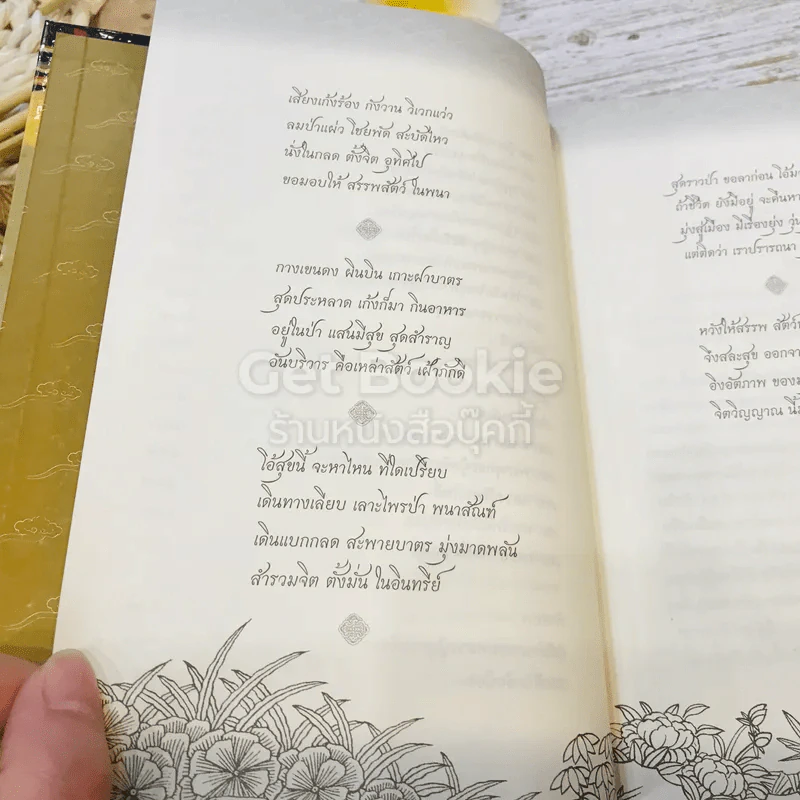 เสียงเก้งร้อง กังวาน วิเวกแว่ว
ลมป่าแผ่ว โชยพัด สะบัดไหว
นั่งในกลด ตั้งจิต อุทิศไป
ขอมอบให้ สรรพสัตว์ ในพนา
กางเขนดง ผินบิน เกาะฝาบาตร
สุดประหลาด เก้งก็มา กินอาหาร
อยู่ในป่า แสนมีสุข สุดสำราญ
อันบริวาร คือเหล่าสัตว์ เฝ้าภักดี
โอ้สุขนี้ จะหาไหน ที่ใดเปรียบ
เดินทางเลียบ เลาะไพรป่า พนาสัณฑ์
เดินแบกกลด สะพายบาตร มุ่งมาดพลัน
สำรวมจิต ตั้งมั่น ในอินทรีย์
สุดราวป่า ขอลาก่อน
ถ้าชีวิต ยังมีอยู่
มุ่งสู่เมือง มีเรื่องยุ่ง
แต่คิดว่า เราปรารถนา
หวังให้สรรพ
จึงสละสุข
อิงอัตภาพ
จิตวิญญาณ
Get Bookie
ร้านหนังสือบุ๊คกี้